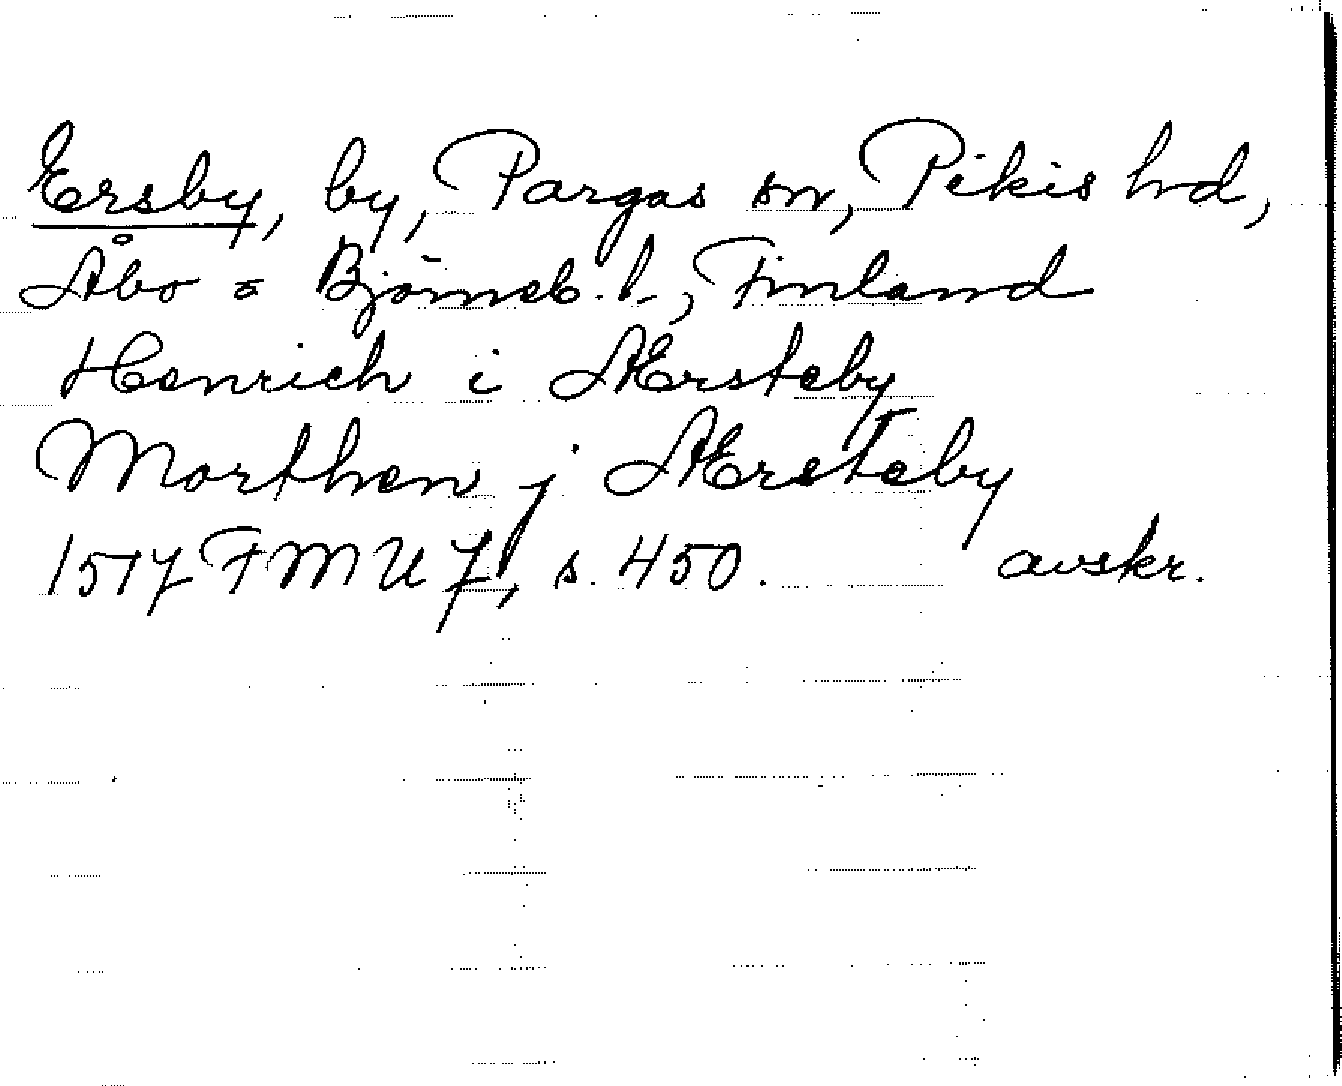 Ersby, by, Pargas sn, Pikis hrd,
Åbo o Björneb. l., Finland
Henrich i Ærsteby
Morthen j Ærsteby
1517 FMU 7, s. 450. avskr.